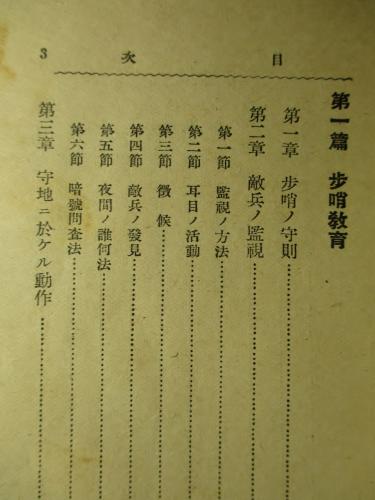 目次 3
第一篇 步哨敎育
第一章 步哨ノ守則
第二章 敵兵ノ監視
第一節 監視ノ方法
第二節 耳目ノ活動
第三節 徵候
第四節 敵兵ノ發見
第五節 夜間ノ誰何法
第六節 暗號問査法
第三章 守地ニ於ケル動作